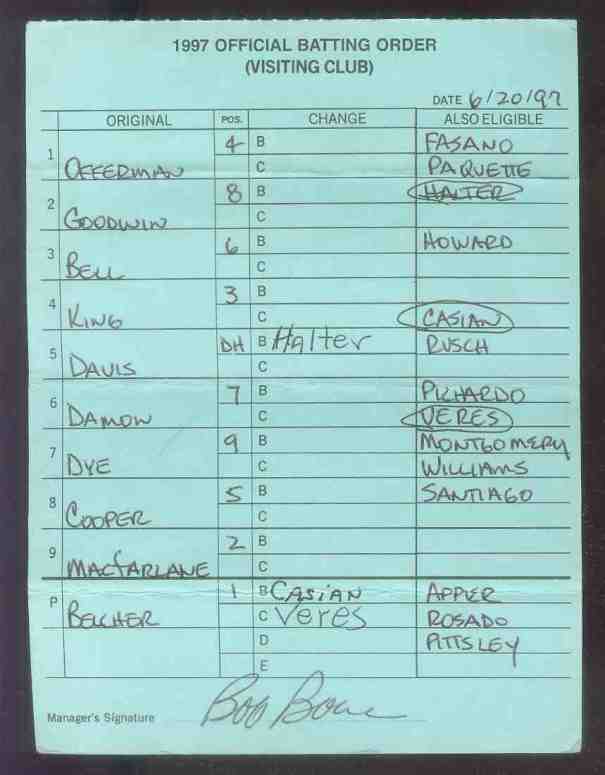 1997 OFFICIAL BATTING ORDER
(VISITING CLUB)
DATE 6/20/97
ORIGINAL POS. CHANGE ALSO ELIGIBLE
1 OFFERMAN 4 B FASANO
C PAQUETTE
2 GOODWIN 8 B HALTER
C
3 BELL 6 B HOWARD
C
4 KING 3 B
C CASIAN
5 DAVIS DH B Halter RUSCH
C
6 DAMON 7 B PICHARDO
C VERES
7 DYE 9 B MONTGOMERY
C WILLIAMS
8 COOPER 5 B SANTIAGO
C
9 MACFARLANE 2 B
C
P BELCHER 1 B CASIAN APPIER
C Veres ROSADO
D PITTSLEY
E
Manager's Signature Bob Boone